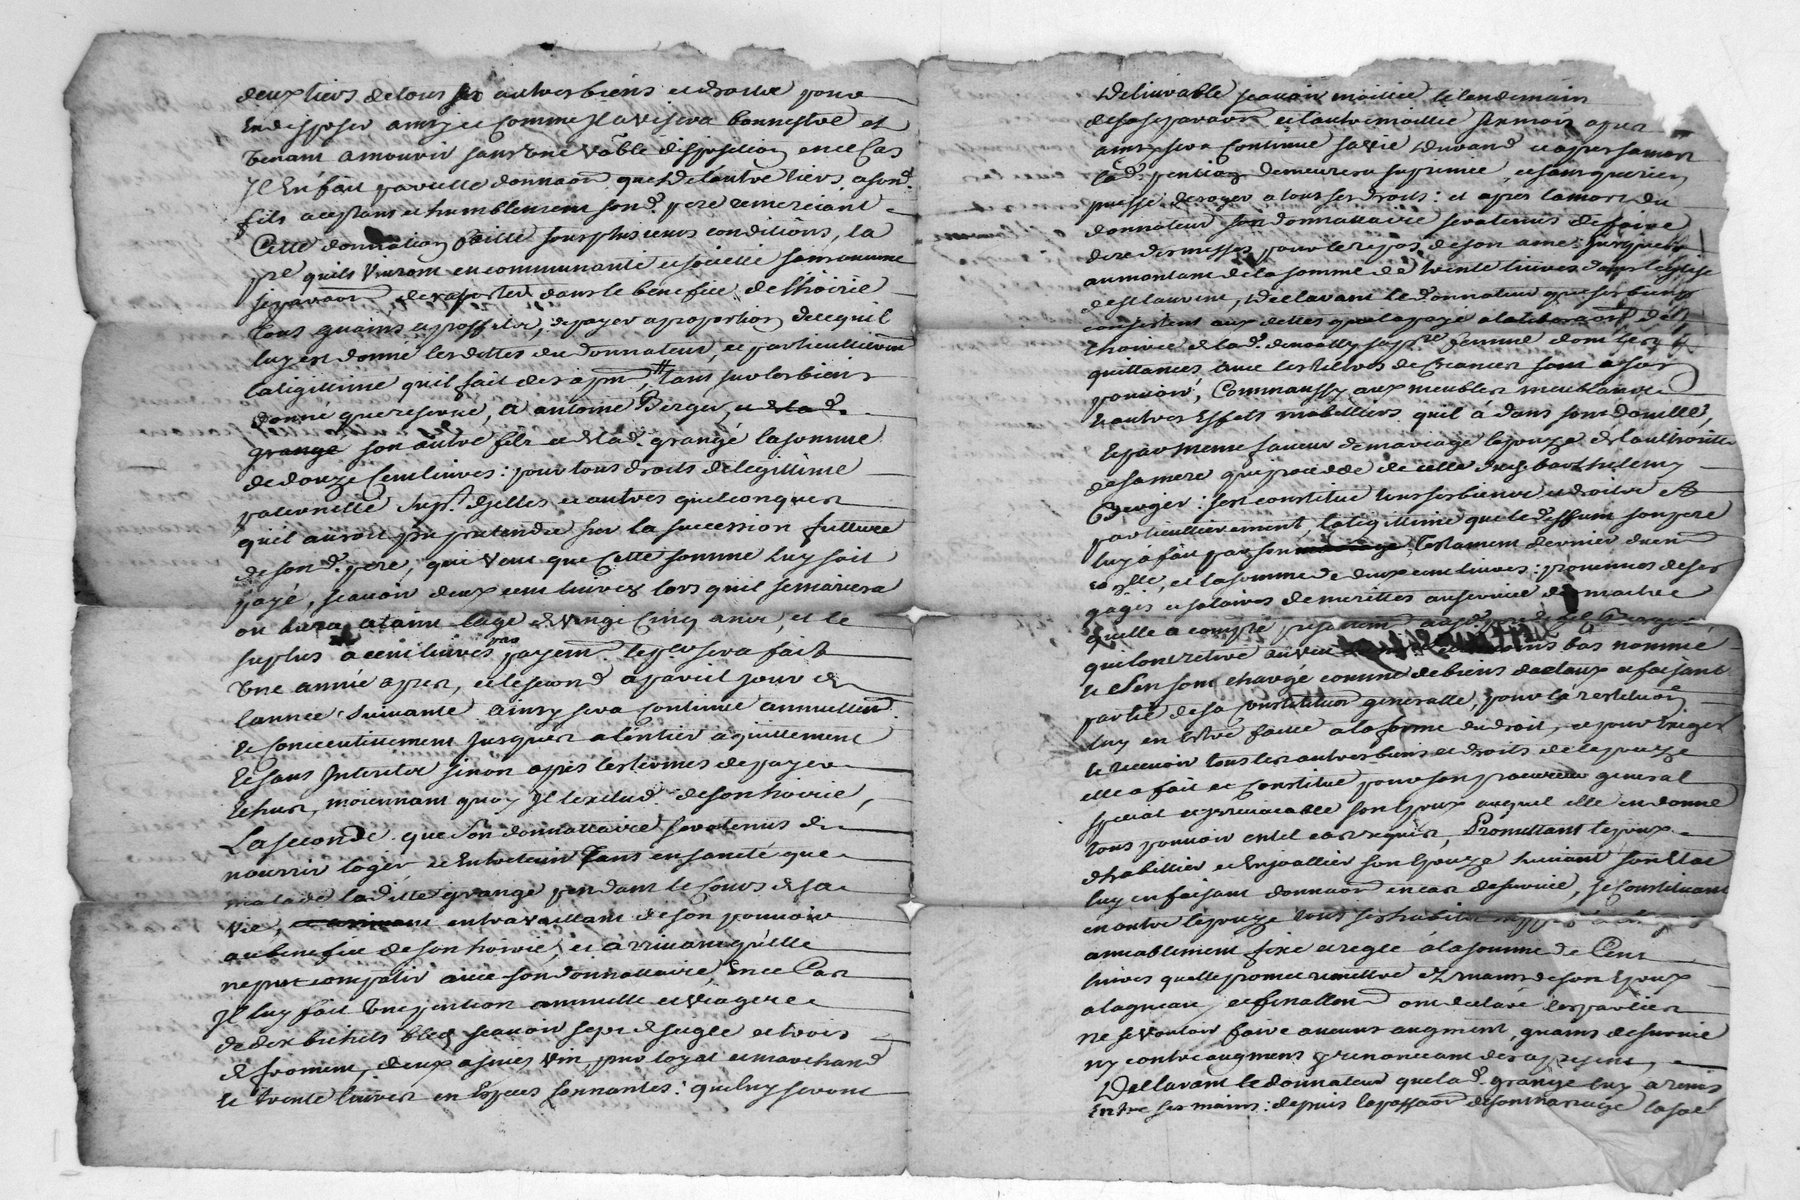 deux tiers de tous ses autres biens et droits pour
En disposer a vie et comme Il avisera bon estre et
Venant a mourir sans une vable disposition en ce Cas
Il En fait pareille donnaon que de lautre tiers a sond.
fils aceptant et humblement sond. pere remerciant
Cette donnation faitte sous plusieurs conditions, la
pre quils Vivront en communauté et societté sans aucune
separaon de raporter dans le benefice de lhoirie
tous guains et proffits, de payer a proportion de ce quil
luy est donné les dettes du donnateur, et particulierement
la legitime quil fait des a pnt, tant sur les biens
donné que reservé, a antoine Berger, et de lad.
grange son autre fils et de lad. grange la somme
de douze Cent livres: pour tous droits de legitime
paternelle supt. d'icelles et autres quelconques
quil auroit peu pretendre sur la succession future
de sond. pere, qui Veut que Cette somme luy soit
payé, scavoir deux cent livres lors quil se mariera
ou aura ataint lage de vingt Cinq ans, et le
surplus a cent livres par payemt le pr. sera fait
une année apres, et le second a pareil jour de
lannée suivante ainsy sera continué annuellemt.
et consecutivement jusques a lentier aquittement
et sans Interets sinon apres les termes de payer
Echus, moiennant quoy Il lexclud de son hoirie,
La seconde que son donnattaire sera tenus de
nourrir loger et Entretenir tant en santé que
malade laditte grange pendant le cours de sa
vie, en travaillant de son pouvoir
au benefice de son hoirie, et arrivant quelle
ne put compatir avec son donnattaire, En ce Cas
Il luy fait une pention annuelle et viagere
de dix bichets bled scavoir sept de seigle et trois
de froment, deux asnées vin pur loyal et marchand
et trente livres en Especes sonnantes: que luy seront
Delivrable scavoir moitiée le lendemain
de sa separaon et lautre moitiée six mois apres
ainsy sera continué sa vie durand et apres sa mort
lad. pention demeurera suprimée, et sans que rien
puisse deroger a tous ses droits: et apres la mort du
donnateur son donnattaire sera tenus de faire
dire des messes pour le repos de son ame: jusques
au montant de la somme de trente livres dans leglise
de St laurent, Declarant le donnateur que ses biens
consistent aux dettes quil a payé a la liberaon de
lhoirie de lad. sa pre femme dont les
quittances avec les titres de creances sont a son
pouvoir, Comme aussy aux meubles meublants
Et autres Effets mobilliers quil à dans son domicille,
Et par meme faveur de mariage lepouze de lauthorité
de sa mere qui procede de celle dud. barthelemy
Berger: sest constitué tous ses biens et droits et
particulierement, la legitime que led. deffunt son pere
luy a fait par son testament dernier
et la somme de deux cent livres: provenus de ses
gages et salaires de merittes au service de maitre
quelle a compté presentemt aud.
quil ont retiré au vü bas nommé
et sen sont chargé comme de biens dotaux et faisant
partie de sa constitution generalle, pour la restituon
luy en etre faitte a la forme du droit, et pour Exiger
et recevoir tous les autres biens et droits de lepouze
elle a fait et constitué pour son procureur general
special et irrevocable son Epoux auquel elle en donne
tous pouvoir en tel cas requis, Promettant lepoux
dhabiller et Enjoallier son Epouze suivant son Etat
luy en faisant donnaon en cas de survie, se constituant
en outre lepouze tous ses habits
amiablement fixé et reglé à la somme de Cent
livres quelle promet remettre Ez mains de son Epoux
a lagneau et finallemt ont declaré les parties
ne se vouloir faire aucuns augment, guains de survie
ny contre augment y renonceant des a present,
Declarant le donnateur que lad. grange luy a remis
Entre ses mains: depuis la passaon de son mariage la soe